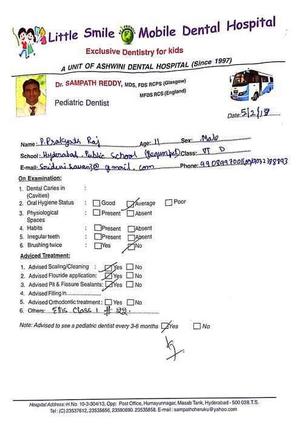 Little Smile Mobile Dental Hospital
Exclusive Dentistry for kids
A UNIT OF ASHWINI DENTAL HOSPITAL (Since 1997)
Dr. SAMPATH REDDY, MDS, FDS RCPS (Glasgow)
MFDS RCS (England)
Pediatric Dentist
Date: 5/2/18
Name: P. Prakyath Raj Age: 11 Sex: Male
School: Hyderabad Public School (Begumpet) Class: VI D
E-mail: @gmail.com Phone:
On Examination:
1. Dental Caries in :
(Cavities)
2. Oral Hygiene Status : Good Average Poor
3. Physiological : Present Absent
Spaces
4. Habits : Present Absent
5. Irregular teeth : Present Absent
6. Brushing twice : Yes No
Adviced Treatment:
1. Advised Scaling/Cleaning : Yes No
2. Advised Flouride application: Yes No
3. Advised Pit & Fissure Sealants: Yes No
4. Advised Filling in
5. Advised Orthodontic treatment : Yes No
6. Others: Class I #
Note: Advised to see a pediatric dentist every 3-6 months Yes No
Hospital Address: H.No. 10-3-304/13, Opp. Post Office, Humayunnagar, Masab Tank, Hyderabad - 500 028.T.S.
Tel: (C) 23537612, 23535656, 23590890. 23535858. E-mail: sampathcheruku@yahoo.com